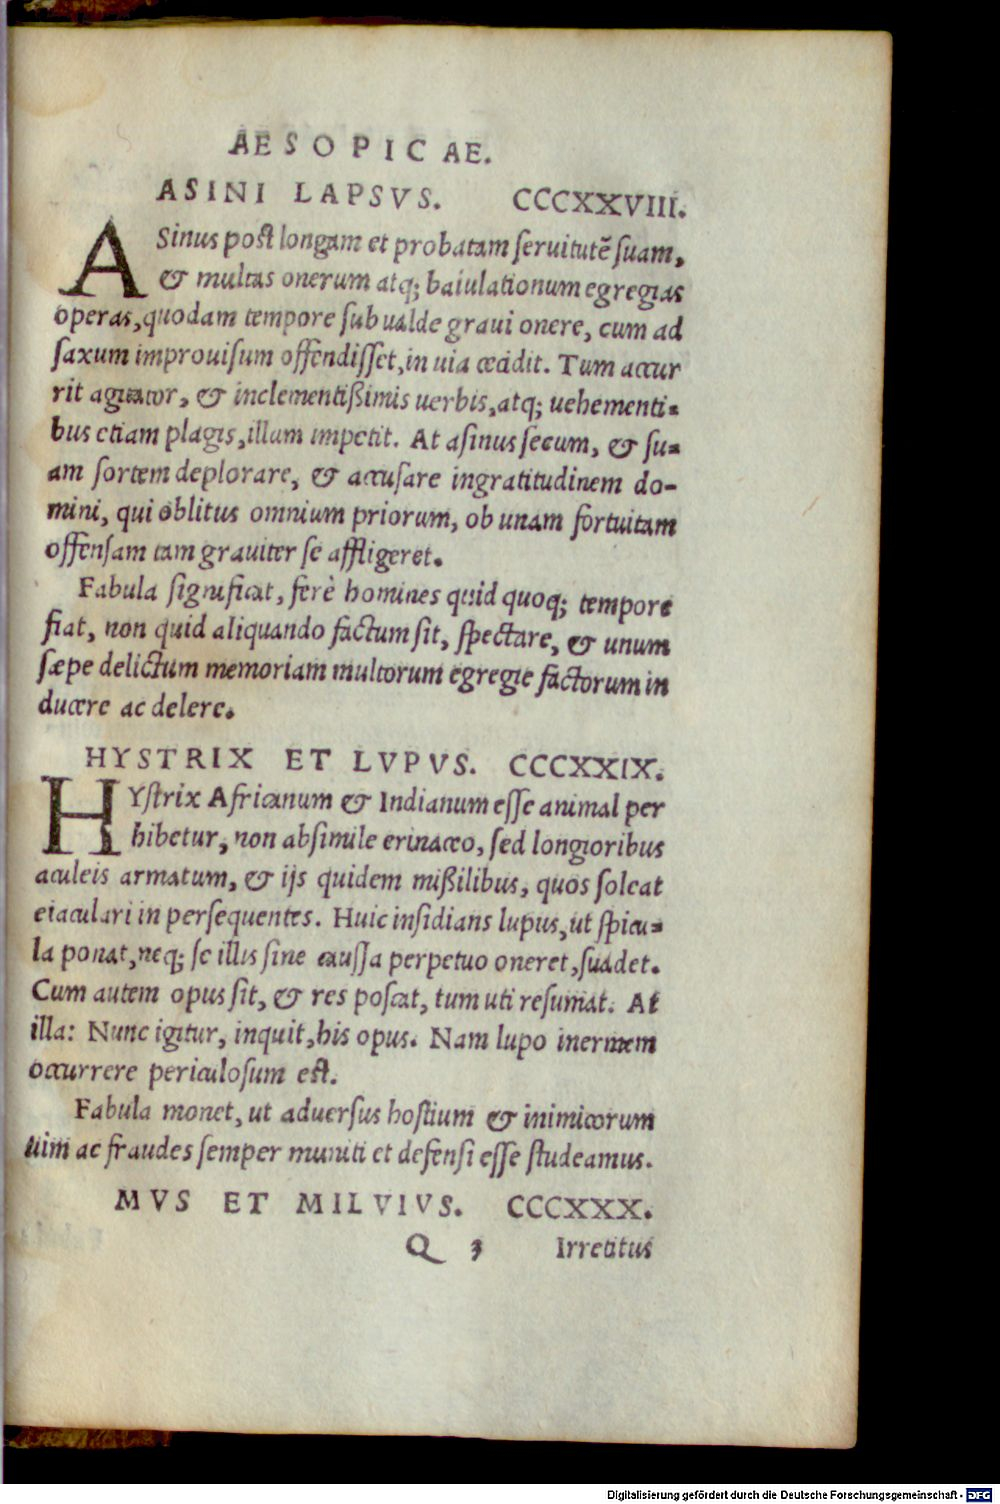 AESOPICAE.
ASINI LAPSVS. CCCXXVIII.
ASinus post longam et probatam seruitutē suam,
& multas onerum atq; baiulationum egregias
operas, quodam tempore sub ualde graui onere, cum ad
saxum improuisum offendisset, in uia cecidit. Tum accur
rit agitator, & inclementißimis uerbis, atq; uehementi-
bus etiam plagis, illum impetit. At asinus secum, & su-
am sortem deplorare, & accusare ingratitudinem do-
mini, qui oblitus omnium priorum, ob unam fortuitam
offensam tam grauiter se affligeret.
Fabula significat, ferè homines quid quoq; tempore
fiat, non quid aliquando factum sit, spectare, & unum
sæpe delictum memoriam multorum egregie factorum in
ducere ac delere.
HYSTRIX ET LVPVS. CCCXXIX.
HYstrix Africanum & Indianum esse animal per
hibetur, non absimile erinaceo, sed longioribus
aculeis armatum, & ijs quidem mißilibus, quos soleat
eiaculari in persequentes. Huic insidians lupus, ut spicu-
la ponat, neq; se illis sine caussa perpetuo oneret, suadet.
Cum autem opus sit, & res poscat, tum uti resumat. At
illa: Nunc igitur, inquit, his opus. Nam lupo inermem
occurrere periculosum est.
Fabula monet, ut aduersus hostium & inimicorum
uim ac fraudes semper muniti et defensi esse studeamus.
MVS ET MILVIVS. CCCXXX.
Q 3 Irretitus
Digitalisierung gefördert durch die Deutsche Forschungsgemeinschaft - DFG